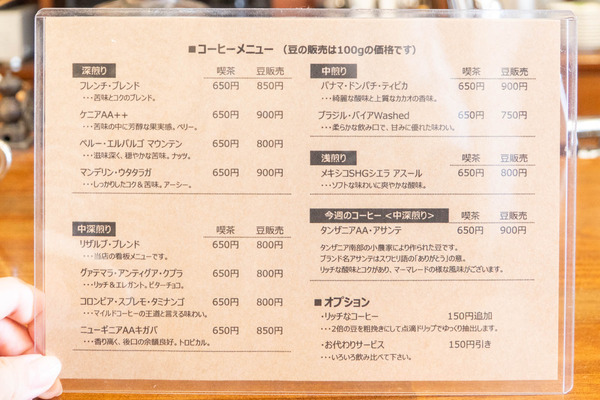 ■コーヒーメニュー （豆の販売は100gの価格です）
深煎り 喫茶 豆販売
フレンチ・ブレンド 650円 850円
・・・苦味とコクのブレンド。
ケニアAA++ 650円 900円
・・・苦味の中に芳醇な果実感。ベリー。
ペルー・エルパルゴ マウンテン 650円 800円
・・・滋味深く、穏やかな苦味。ナッツ。
マンデリン・ウタラガ 650円 900円
・・・しっかりしたコク＆苦味。アーシー。
中深煎り 喫茶 豆販売
リザルブ・ブレンド 650円 800円
・・・当店の看板メニューです。
グァテマラ・アンティグア・クプラ 650円 800円
・・・リッチ＆エレガント。ビターチョコ。
コロンビア・スプレモ・タミナンゴ 650円 800円
・・・マイルドコーヒーの王道と言える味わい。
ニューギニアAAキガバ 650円 850円
・・・香り高く、後口の余韻良好。トロピカル。
中煎り 喫茶 豆販売
パナマ・ドンパチ・ティピカ 650円 900円
・・・綺麗な酸味と上質なカカオの香味。
ブラジル・バイアWashed 650円 750円
・・・柔らかな飲み口で、甘みに優れた味わい。
浅煎り 喫茶 豆販売
メキシコSHGシエラ アスール 650円 800円
・・・ソフトな味わいに爽やかな酸味。
今週のコーヒー <中深煎り> 喫茶 豆販売
タンザニアAA・アサンテ 650円 900円
タンザニア南部の小農家により作られた豆です。
ブランド名アサンテはスワヒリ語の「ありがとう」の意。
リッチな酸味とコクがあり、マーマレードの様な風味がございます。
■オプション
・リッチなコーヒー 150円追加
・・・2倍の豆を粗挽きにして点滴ドリップでゆっくり抽出します。
・お代わりサービス 150円引き
・・・いろいろ飲み比べて下さい。